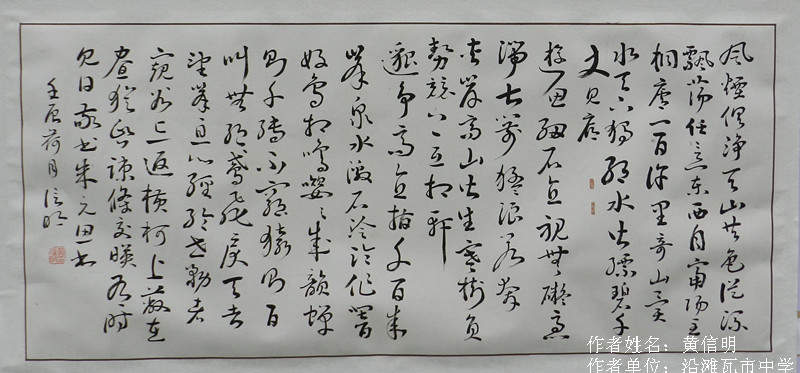 風煙俱淨天山共色從流
飄荡任意东西自富陽至
桐廬一百许里奇山異
水天下獨絕水皆縹碧千
丈見底
游魚細石直視無礙急
湍甚箭猛浪若奔
夹岸高山皆生寒树負
势競上互相軒
邈争高直指千百成
峯泉水激石泠泠作響
好鳥相鳴嚶嚶成韻蟬
則千转不窮猿則百
叫無絕鳶飛戾天者
望峯息心經綸世務者
窺谷忘返横柯上蔽在
昼猶昏疎條交映有時
見日敬书朱元思书
壬辰荷月信明
作者姓名：黄信明
作者单位：沿滩瓦市中学